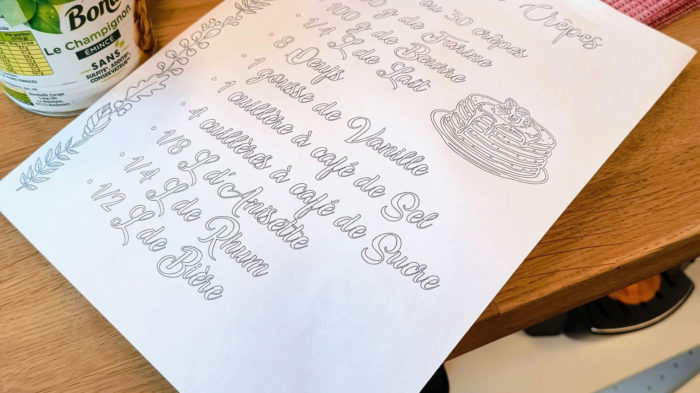 Bon
Le Champignon
ÉMINCÉ
SANS
Crêpes
ou 30 crêpes
g de Farine
100 g de Beurre
1/4 L de Lait
8 Oeufs
1 gousse de Vanille
1 cuillière à café de Sel
4 cuillières à café de Sucre
1/8 L d'Anisette
1/4 L de Rhum
1/2 L de Bière